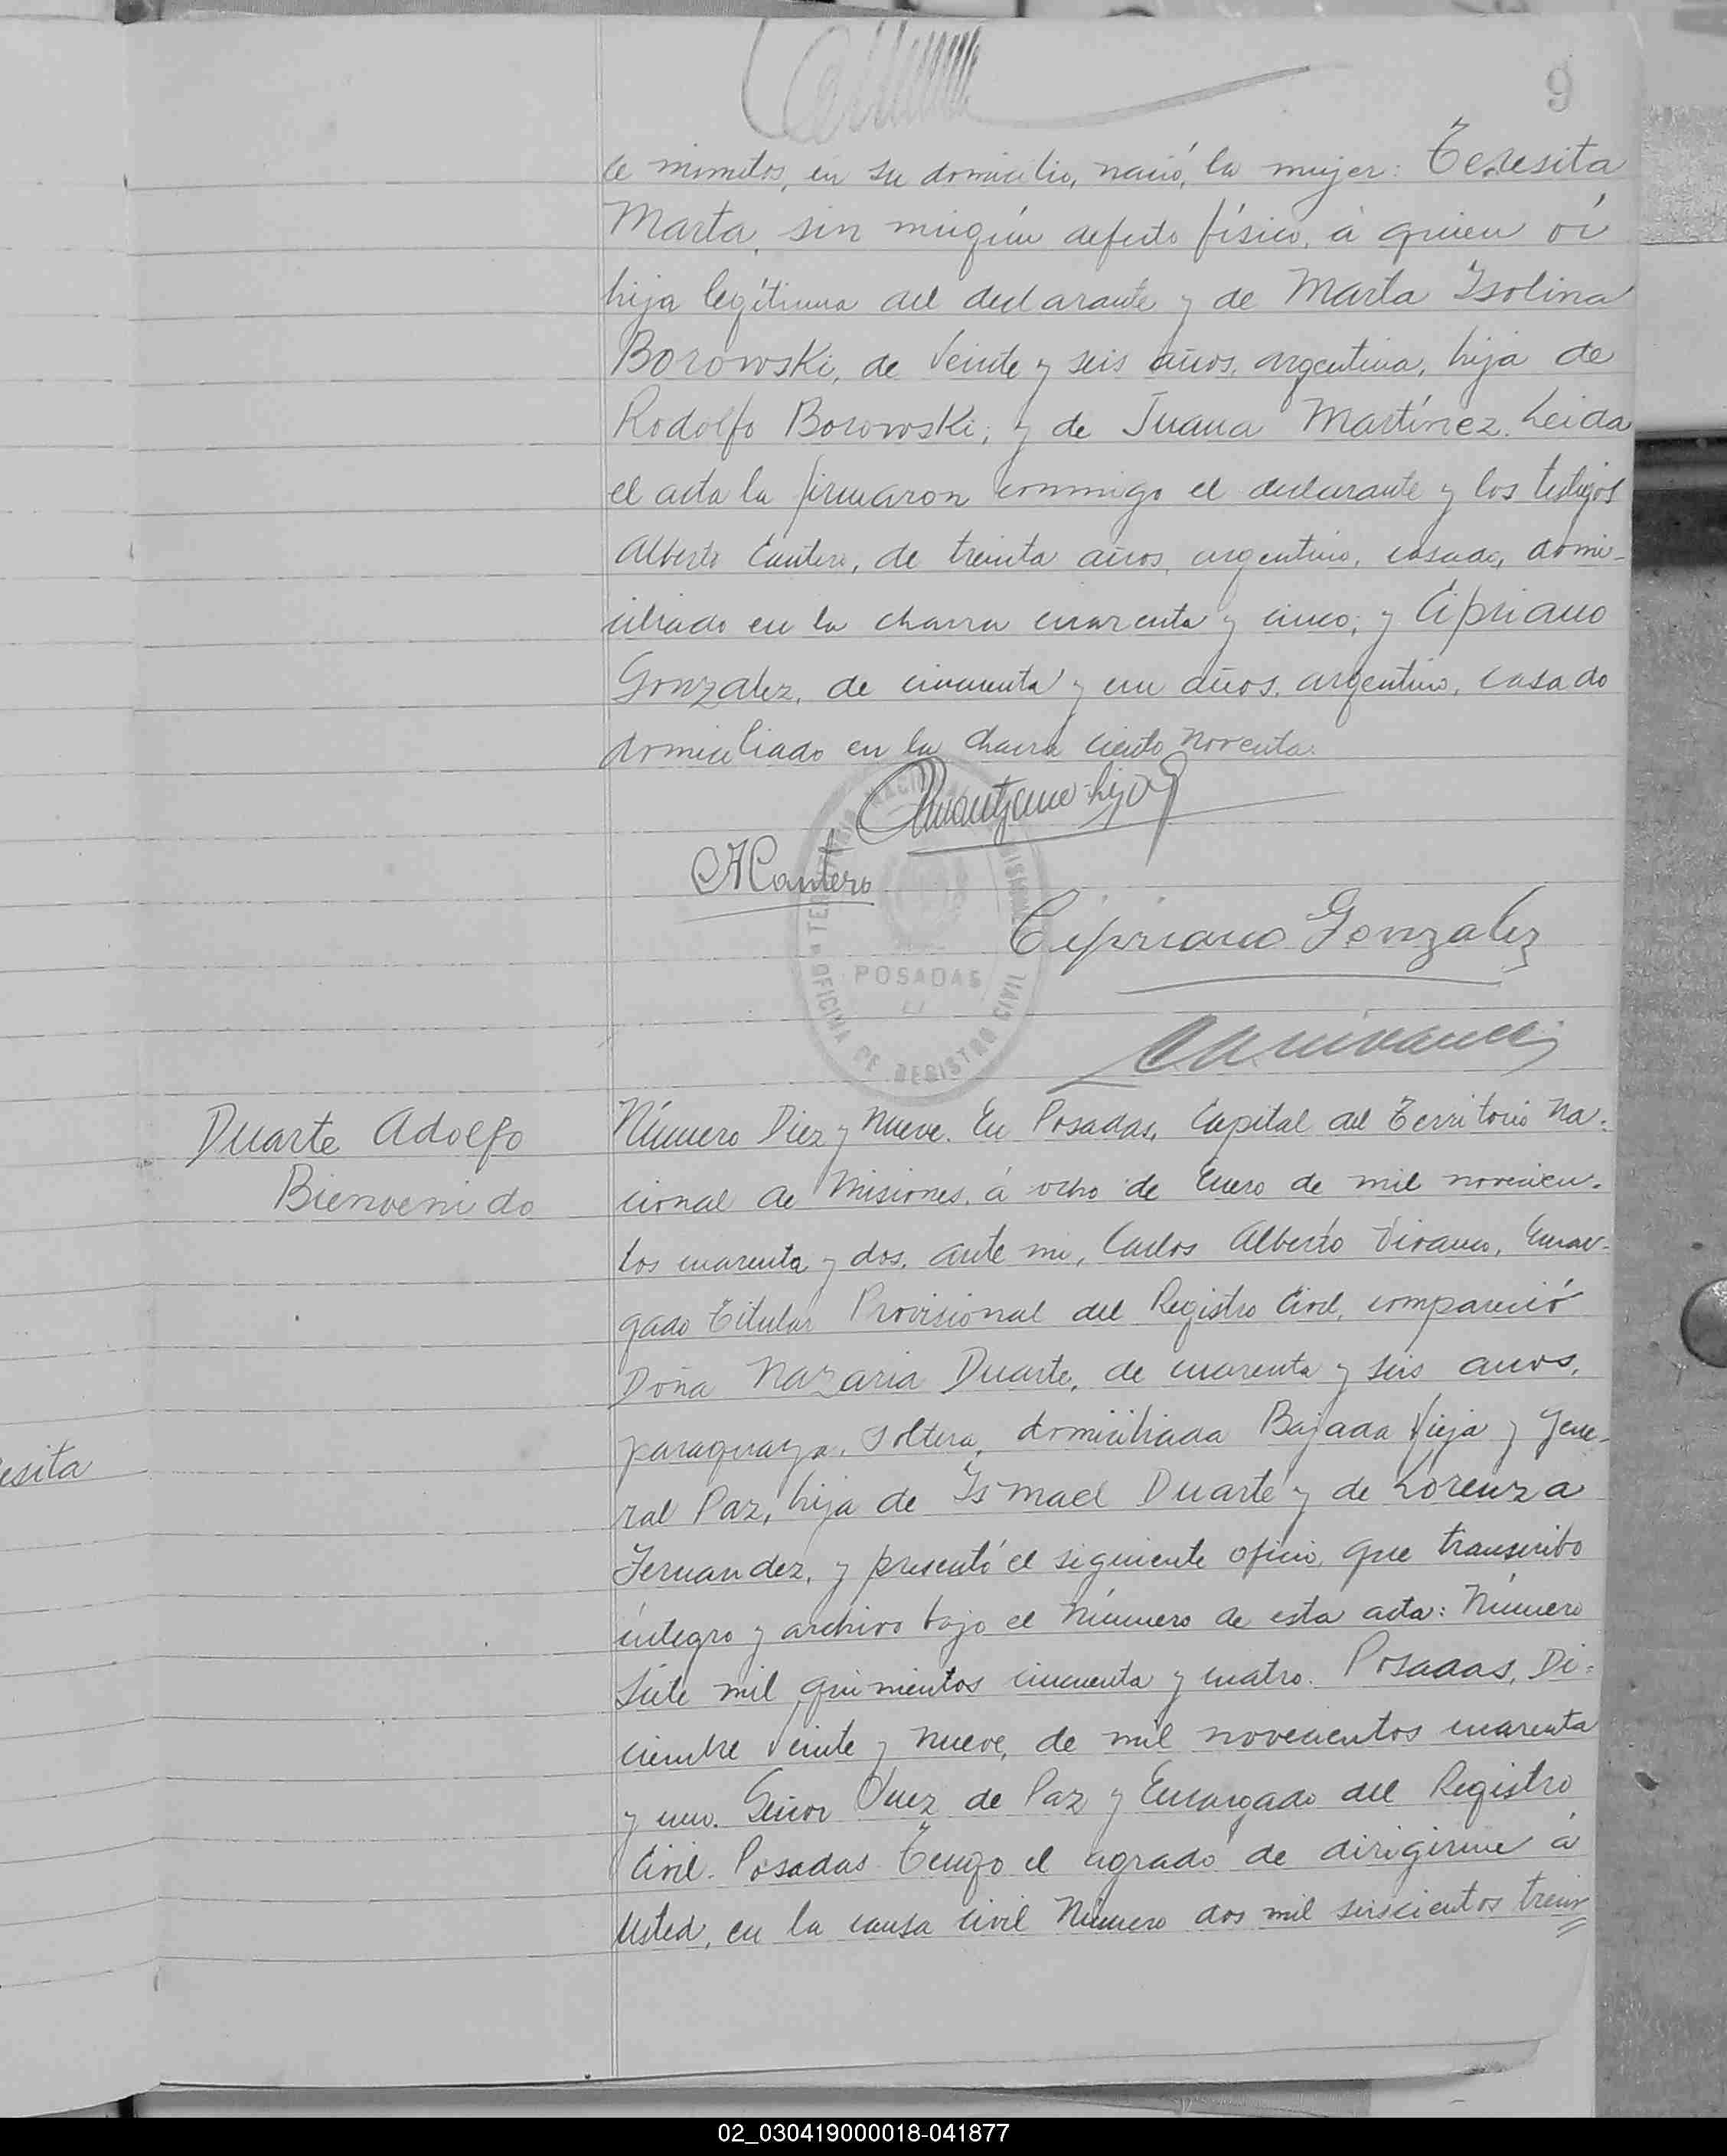 9
ce minutos, en su domicilio, nació, la mujer: Teresita
Marta, sin ningún defecto físico, á quien ví
hija legítima del declarante y de Marta Isolina
Borowski, de veinte y seis años, argentina, hija de
Rodolfo Borowski; y de Juana Martínez. Leida
el acta la firmaron conmigo el declarante y los testigos
Alberto Cantero, de treinta años, argentino, casado, domi-
ciliado en la chacra cuarenta y cinco; y Cipriano
Gonzalez, de cincuenta y un años, argentino, casado
domiciliado en la chacra ciento noventa.
hijo
ACantero
Cipriano Gonzalez
TERRITORIO NACIONAL MISIONES
POSADAS
OFICINA DE REGISTRO CIVIL
Duarte Adolfo
Bienvenido
Número Diez y Nueve. En Posadas, Capital del Territorio Na-
cional de Misiones, á ocho de Enero de mil novecien-
tos cuarenta y dos, ante mi, Carlos Alberto Vivanco, Encar-
gado Titular Provisional del Registro Civil, compareció
Doña Nazaria Duarte, de cuarenta y seis años,
paraguaya, soltera, domiciliada Bajada Vieja y Gene-
ral Paz, hija de Ismael Duarte y de Lorenza
Fernandez, y presentó el siguiente oficio, que transcribo
íntegro y archivo bajo el número de esta acta: Número
Siete mil quinientos cincuenta y cuatro. Posadas, Di-
ciembre veinte y nueve, de mil novecientos cuarenta
y uno. Señor Juez de Paz y Encargado del Registro
Civil. Posadas. Tengo el agrado de dirigirme á
Usted, en la causa civil Número dos mil seiscientos trein
esita
02_030419000018-041877